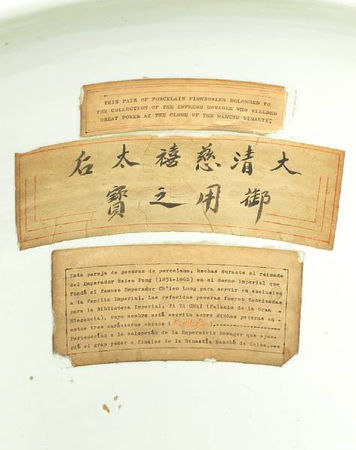 THIS PAIR OF PORCELAIN FISHBOWLS BELONGED TO
THE COLLECTION OF THE EMPRESS DOWAGER WHO WIELDED
GREAT POWER AT THE CLOSE OF THE MANCHU DYNASTY.
大清慈禧太后
御用之寶
Esta pareja de peceras de porcelana, hechas durante el reinado
del Emperador Hsien Fong (1851-1862) en el horno imperial que
fundó el famoso Emperador Ch'ien Long para servir en exclusiva
a la Familia Imperial. Las referidas peceras fueron fabricadas
para la Biblioteca Imperial, TA YA CHAI (Palacio de la Gran
cuyo nombre está escrito sobre dichas peceras en
estos tres carácteres chinos (大雅齋)
Pertenecían a la colección de la Emperatriz Dowager que ejer-
ció el gran poder a finales de la Dinastía Manchú de China.